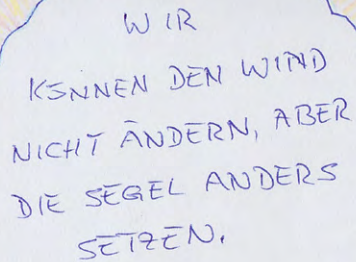 WIR
KÖNNEN DEN WIND
NICHT ÄNDERN, ABER
DIE SEGEL ANDERS
SETZEN.